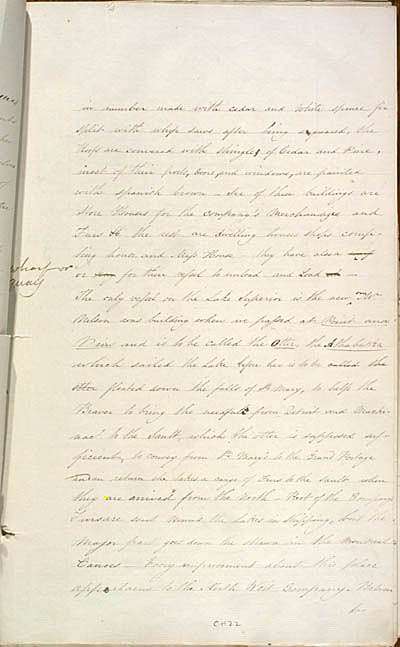 in number made with cedar and White spruce fir
split with whip saws after being squared, the
Roofs are couvered with shingles of Cedar and Pine,
most of their posts, doors and windows, are painted
with spanish brown – Six of these buildings are
Store Houses for the company's Merchandize and
Furs &c the rest are dwelling houses shops comp-
ting house and Mess House – they have also a
wharf or
quay
or for their vessel to unload and Load at –
The only vessel on the Lake Superior is the new one Mr
Nelson was building when we passed at Point aux
Pins and is to be Called the Otter, the Athabaska
which sailed the Lake before her is to be called the
otter floated down the falls of St Mary, to help the
Beaver to bring the needfull from Detroit and Macki-
nac to the Sault, which the otter is supposed suf-
ficient, to convey from St Mary's to the Grand Portage
and on return she takes a cargo of Furs to the Sault when
they are arrived from the North – Part of the Companys
Furs are sent round the Lakes in shipping, but the
Major part goes down the ottawa in the Montreal
Canoes – Every improvement about this place
appertains to the North West Company. Between
&c
C-H22